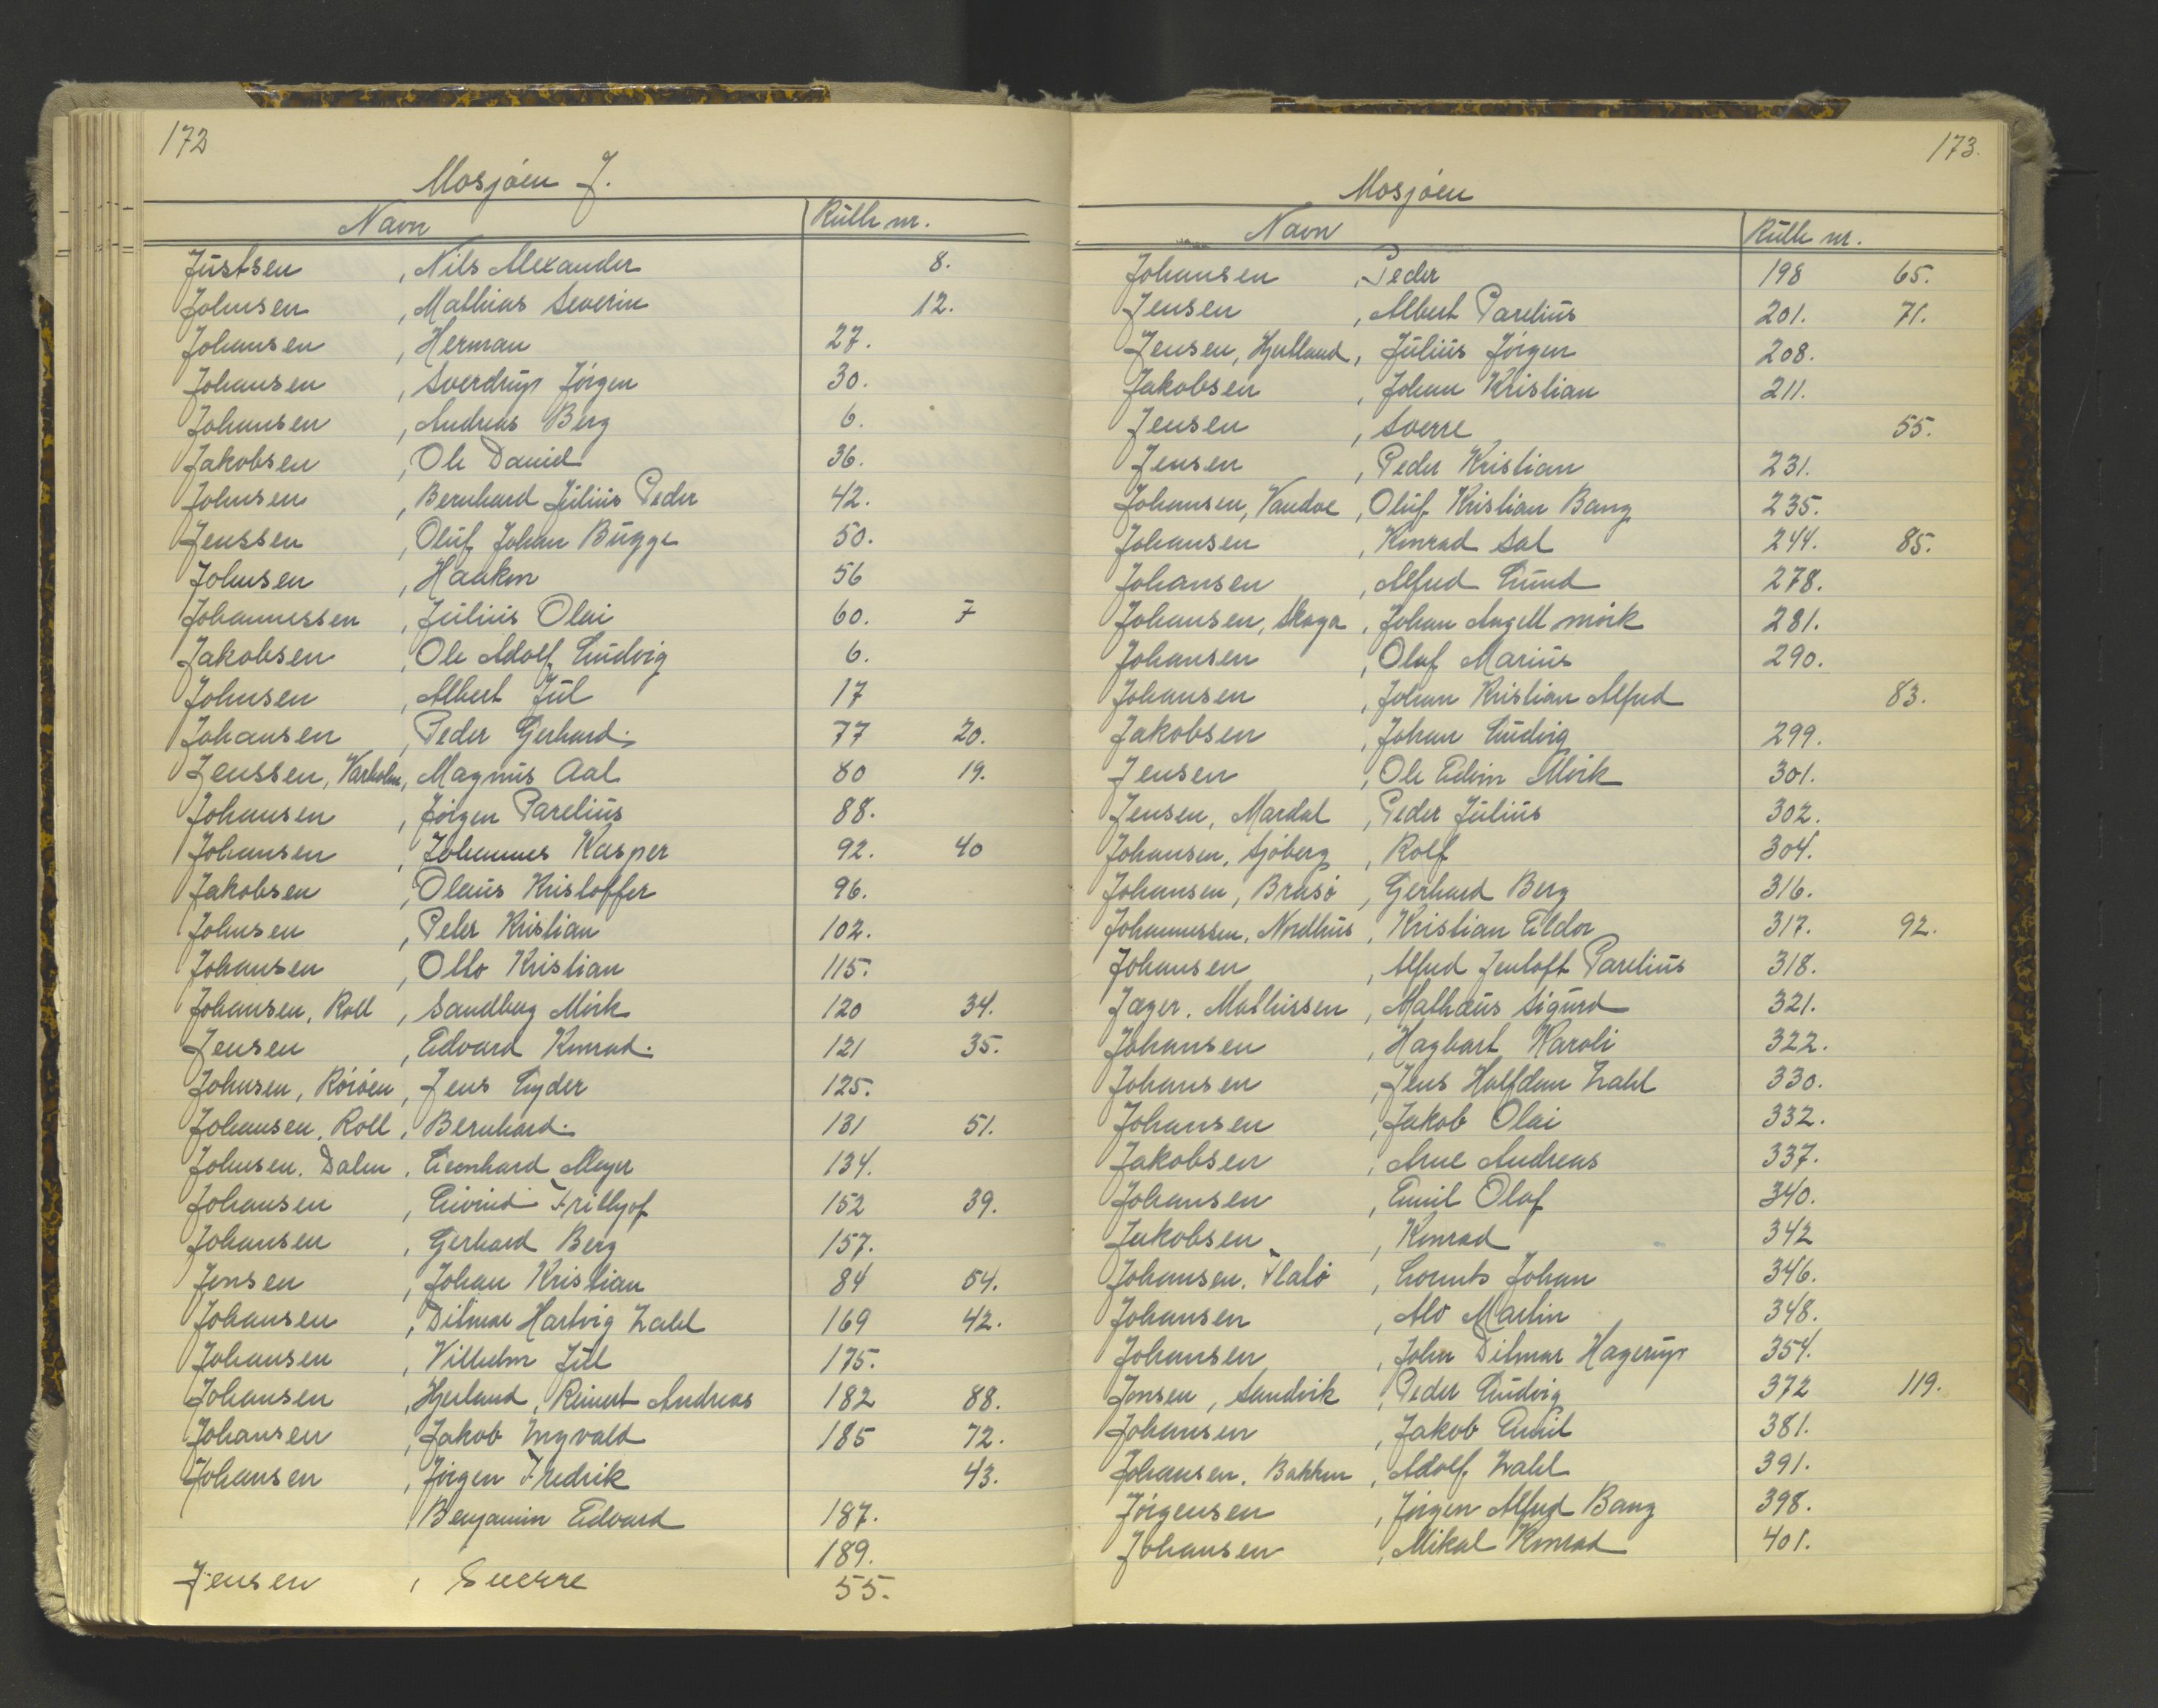 172
Mosjøen J.
Navn Rulle nr.
Justsen , Nils Alexander 8.
Johnsen , Mathias Severin 12.
Johansen , Herman 27.
Johansen , Sverdrup Jörgen 30.
Johansen , Andreas Berg 6.
Jakobsen , Ole Daniel 36.
Johnsen , Bernhard Julius Peder 42.
Jenssen , Oluf Johan Bugge 50.
Johnsen , Haakon 56
Johannessen , Julius Olai 60. 7
Jakobsen , Ole Adolf Ludvig 6.
Johnsen , Albert Jul 17
Johansen , Peder Gerhard. 77 20.
Jenssen, Varholm, Magnus Aal 80 19.
Johansen , Jörgen Parelius 88.
Johansen , Johannes Kasper 92. 40
Jakobsen , Olaus Kristoffer 96.
Johnsen , Peter Kristian 102.
Johansen , Otto Kristian 115.
Johansen, Roll , Sandberg Mörk 120 34.
Jensen , Edvard Konrad. 121 35.
Johnsen, Röröen , Jens Lyder 125.
Johansen, Roll , Bernhard. 131 51.
Johnsen, Dalen , Leonhard Meyer 134.
Johansen , Eivind Fritjof 152 39.
Johansen , Gerhard Berg 157.
Jensen , Johan Kristian 84 54.
Johansen , Ditmar Hartvig Zahl 169 42.
Johansen , Vilhelm Jul 175.
Johansen , Hjerland, Reinert Andreas 182 88.
Johansen , Jakob Ingvald 185 72.
Johansen , Jörgen Fredrik 43.
, Benjamin Edvard 187.
189.
Jensen , Sverre 55.
173.
Mosjøen
Navn Rulle nr.
Johansen , Peder 198 65.
Jensen , Albert Parelius 201. 71.
Jensen, Hjertland, Julius Jörgen 208.
Jakobsen , Johan Kristian 211.
Jensen , Sverre 55.
Jensen , Peder Kristian 231.
Johansen, Vandve , Oluf Kristian Bang 235.
Johansen , Konrad Sal 244. 85.
Johansen , Alfred Lund 278.
Johansen, Skaga , Johan Angell mörk 281.
Johansen , Olaf Marius 290.
Johansen , Johan Kristian Alfred 83.
Jakobsen , Johan Ludvig 299.
Jensen , Ole Edvin Mörk 301.
Jensen, Mardal , Peder Julius 302.
Johansen, Sjöberg , Rolf 304.
Johansen, Brasö , Gerhard Berg 316.
Johannessen, Nordhus , Kristian Eldor 317. 92.
Johansen , Alfred Jentoft Parelius 318.
Jæger, Mathissen , Mathæus Sigurd 321.
Johansen , Hagbart Karoli 322.
Johansen , Jens Halfdan Zahl 330.
Johansen , Jakob Olai 332.
Jakobsen , Arne Andreas 337.
Johansen , Emil Olaf 340.
Jakobsen , Konrad 342
Johansen, Flatö , Lorents Johan 346.
Johansen , Alo Martin 348.
Johansen , John Ditmar Hagerup 354.
Jensen, Sandvik , Peder Ludvig 372 119.
Johansen , Jakob Emil 381.
Johansen, Bakken , Adolf Zahl 391.
Jörgensen , Jörgen Alfred Bang 398.
Johansen , Mikal Konrad 401.